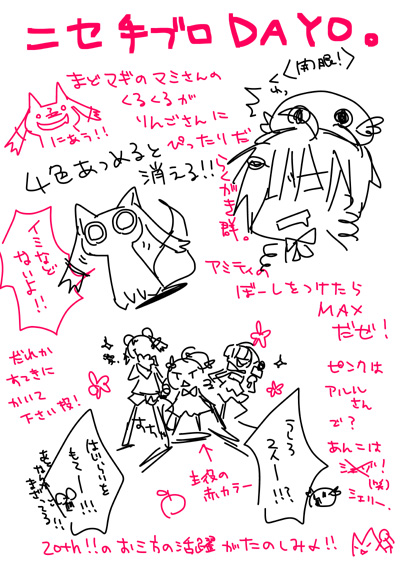 ニセ手ブロDAYO。
まどマギのマミさんの
くるくるが
りんごさんに
ぴったりだ
らくがき群。
にあう!!
く<開眼!>
4色あつめると
消える!!
イミなど
ないよ!!
アミティの
ぼーしをつけたら
MAX
だぜ!
だれか
すてきに
かいて
下さい/
ピンクは
アルル
さん
で?
あんこは
シェリー。
うしろ
はじらいを
もてー!!!
主役の
赤カラー
20th!!のお三方の活躍がたのしみよ!!